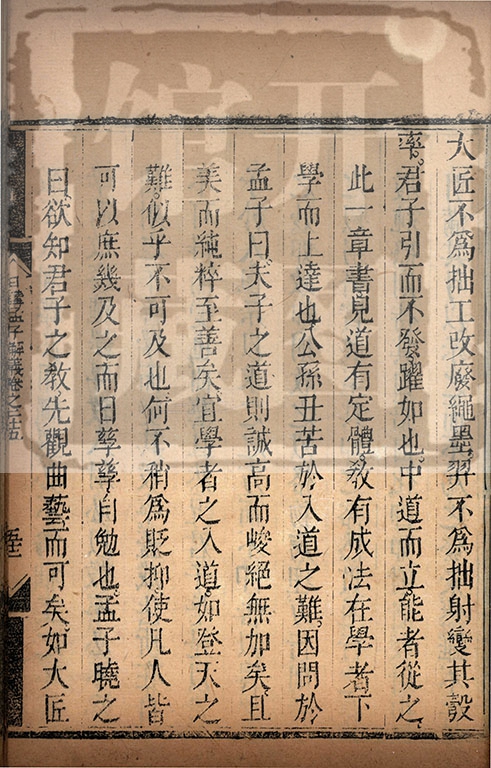 大匠不爲拙工改廢繩墨羿不爲拙射變其彀
率君子引而不發躍如也中道而立能者從之
此一章書見道有定體教有成法在學者下
學而上達也公孫丑苦於入道之難因問於
孟子曰夫子之道則誠高而峻絕無加矣且
美而純粹至善矣宜學者之入道如登天之
難似乎不可及也何不稍爲貶抑使凡人皆
可以庶幾及之而日孳孳自勉也孟子曉之
曰欲知君子之教先觀曲藝而可矣如大匠
日講孟子解義卷之二十五